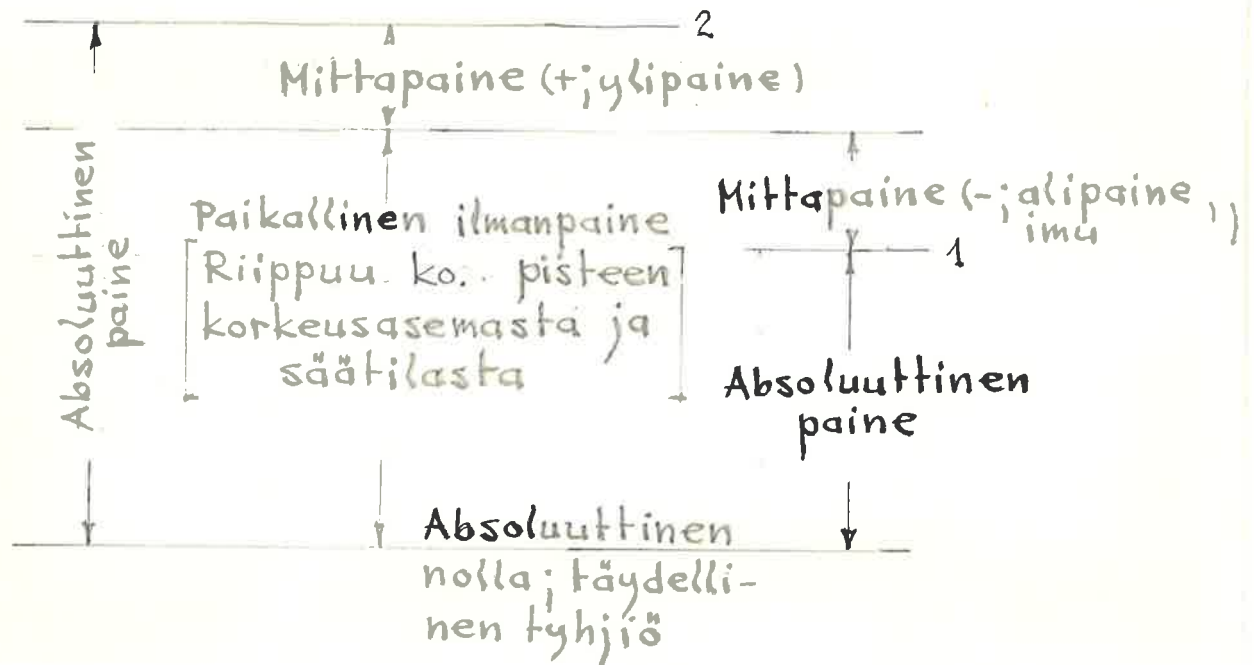 2
Mittapaine (+; ylipaine)
Absoluuttinen
paine
Paikallinen ilmanpaine
[Riippuu ko. pisteen
korkeusasemasta ja
säätilasta]
Mittapaine (-; alipaine,
imu)
1
Absoluuttinen
paine
Absoluuttinen
nolla; täydelli-
nen tyhjiö